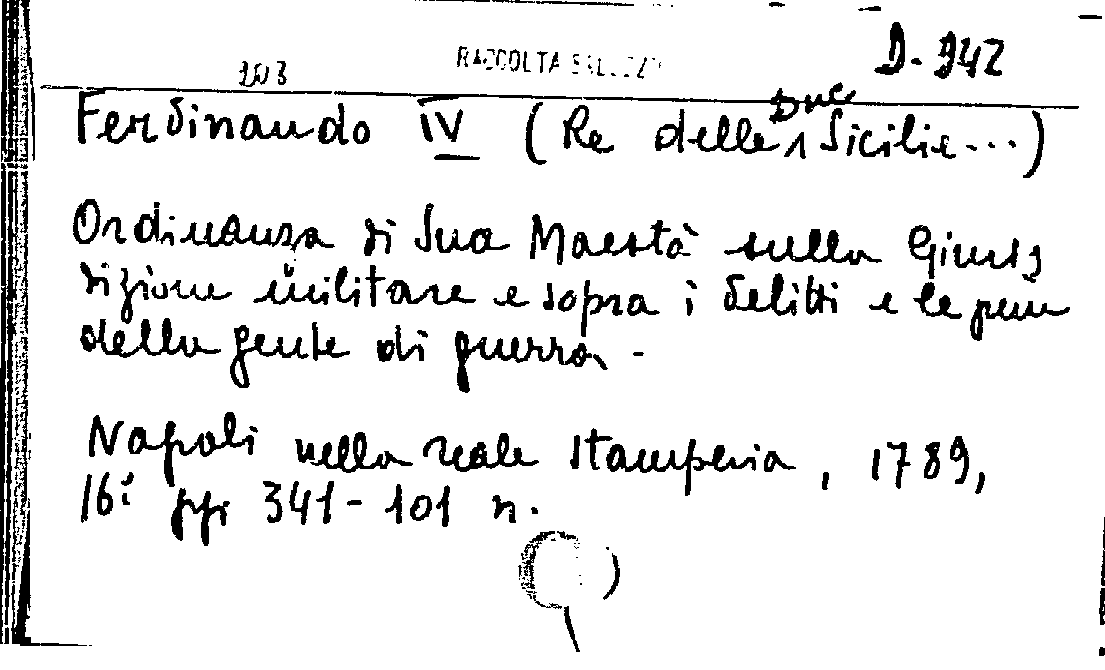 103 RACCOLTA SALUZZO D. 942
Ferdinando IV (Re delle Due Sicilie...)
Ordinanza di Sua Maestà sulla Giuris
dizione militare e sopra i delitti e le pene
della gente di guerra -
Napoli nella reale stamperia, 1789,
16° pp 341-101 n.